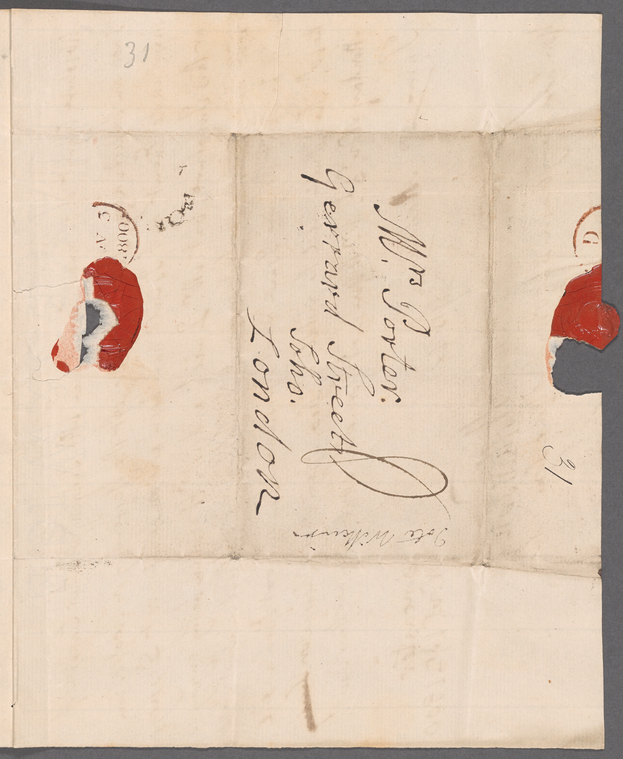 31
Mrs Porter.
Gerrard Street
Soho.
London
31